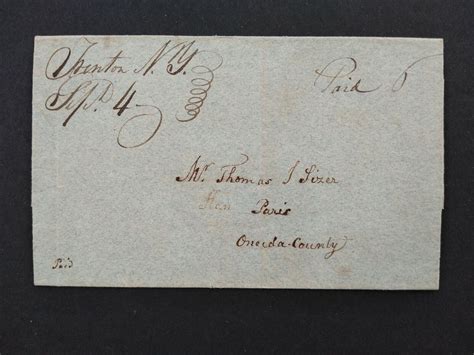 Trenton N.Y.
Sept. 4
Paid 6
Mr. Thomas J Sizer
New Paris
Oneida County
Paid